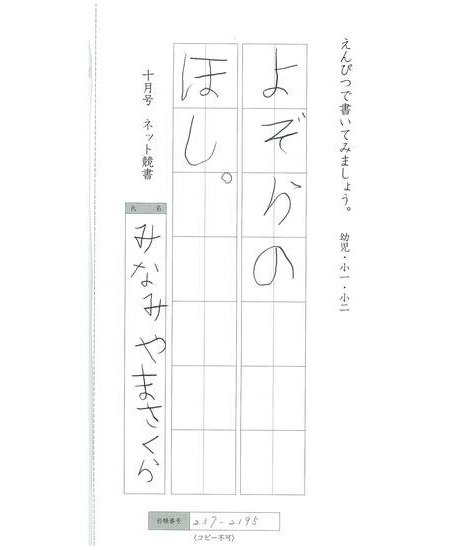 えんぴつで書いてみましょう。 幼児・小一・小二
よぞらの
ほし。
十月号 ネット競書
氏 名
みなみやまさくら
台帳番号 237-2195
(コピー不可)